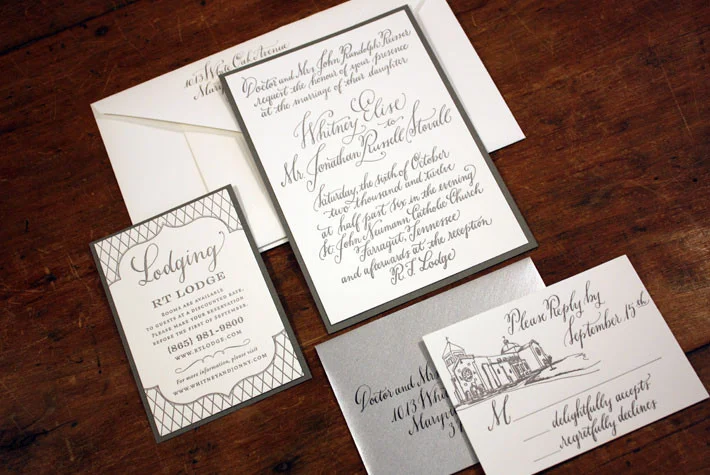 1013 White Oak Avenue
Mary
Doctor and Mrs. John Randolph
request the honour of your presence
at the marriage of their daughter
Whitney Elise
to
Mr. Jonathan Russell Stovall
Saturday, the sixth of October
two thousand and twelve
at half past six in the evening
St. John Neumann Catholic Church
Farragut, Tennessee
and afterwards at the reception
RT Lodge
Lodging
RT LODGE
ROOMS ARE AVAILABLE
TO GUESTS AT A DISCOUNTED RATE.
PLEASE MAKE YOUR RESERVATION
BEFORE THE FIRST OF SEPTEMBER.
{865} 981-9800
WWW.RTLODGE.COM
For more information, please visit
WWW.WHITNEYANDJONNY.COM
Doctor and Mrs.
1013 White
Maryv
3
Please Reply by
September 15th
M
delightfully accepts
regretfully declines